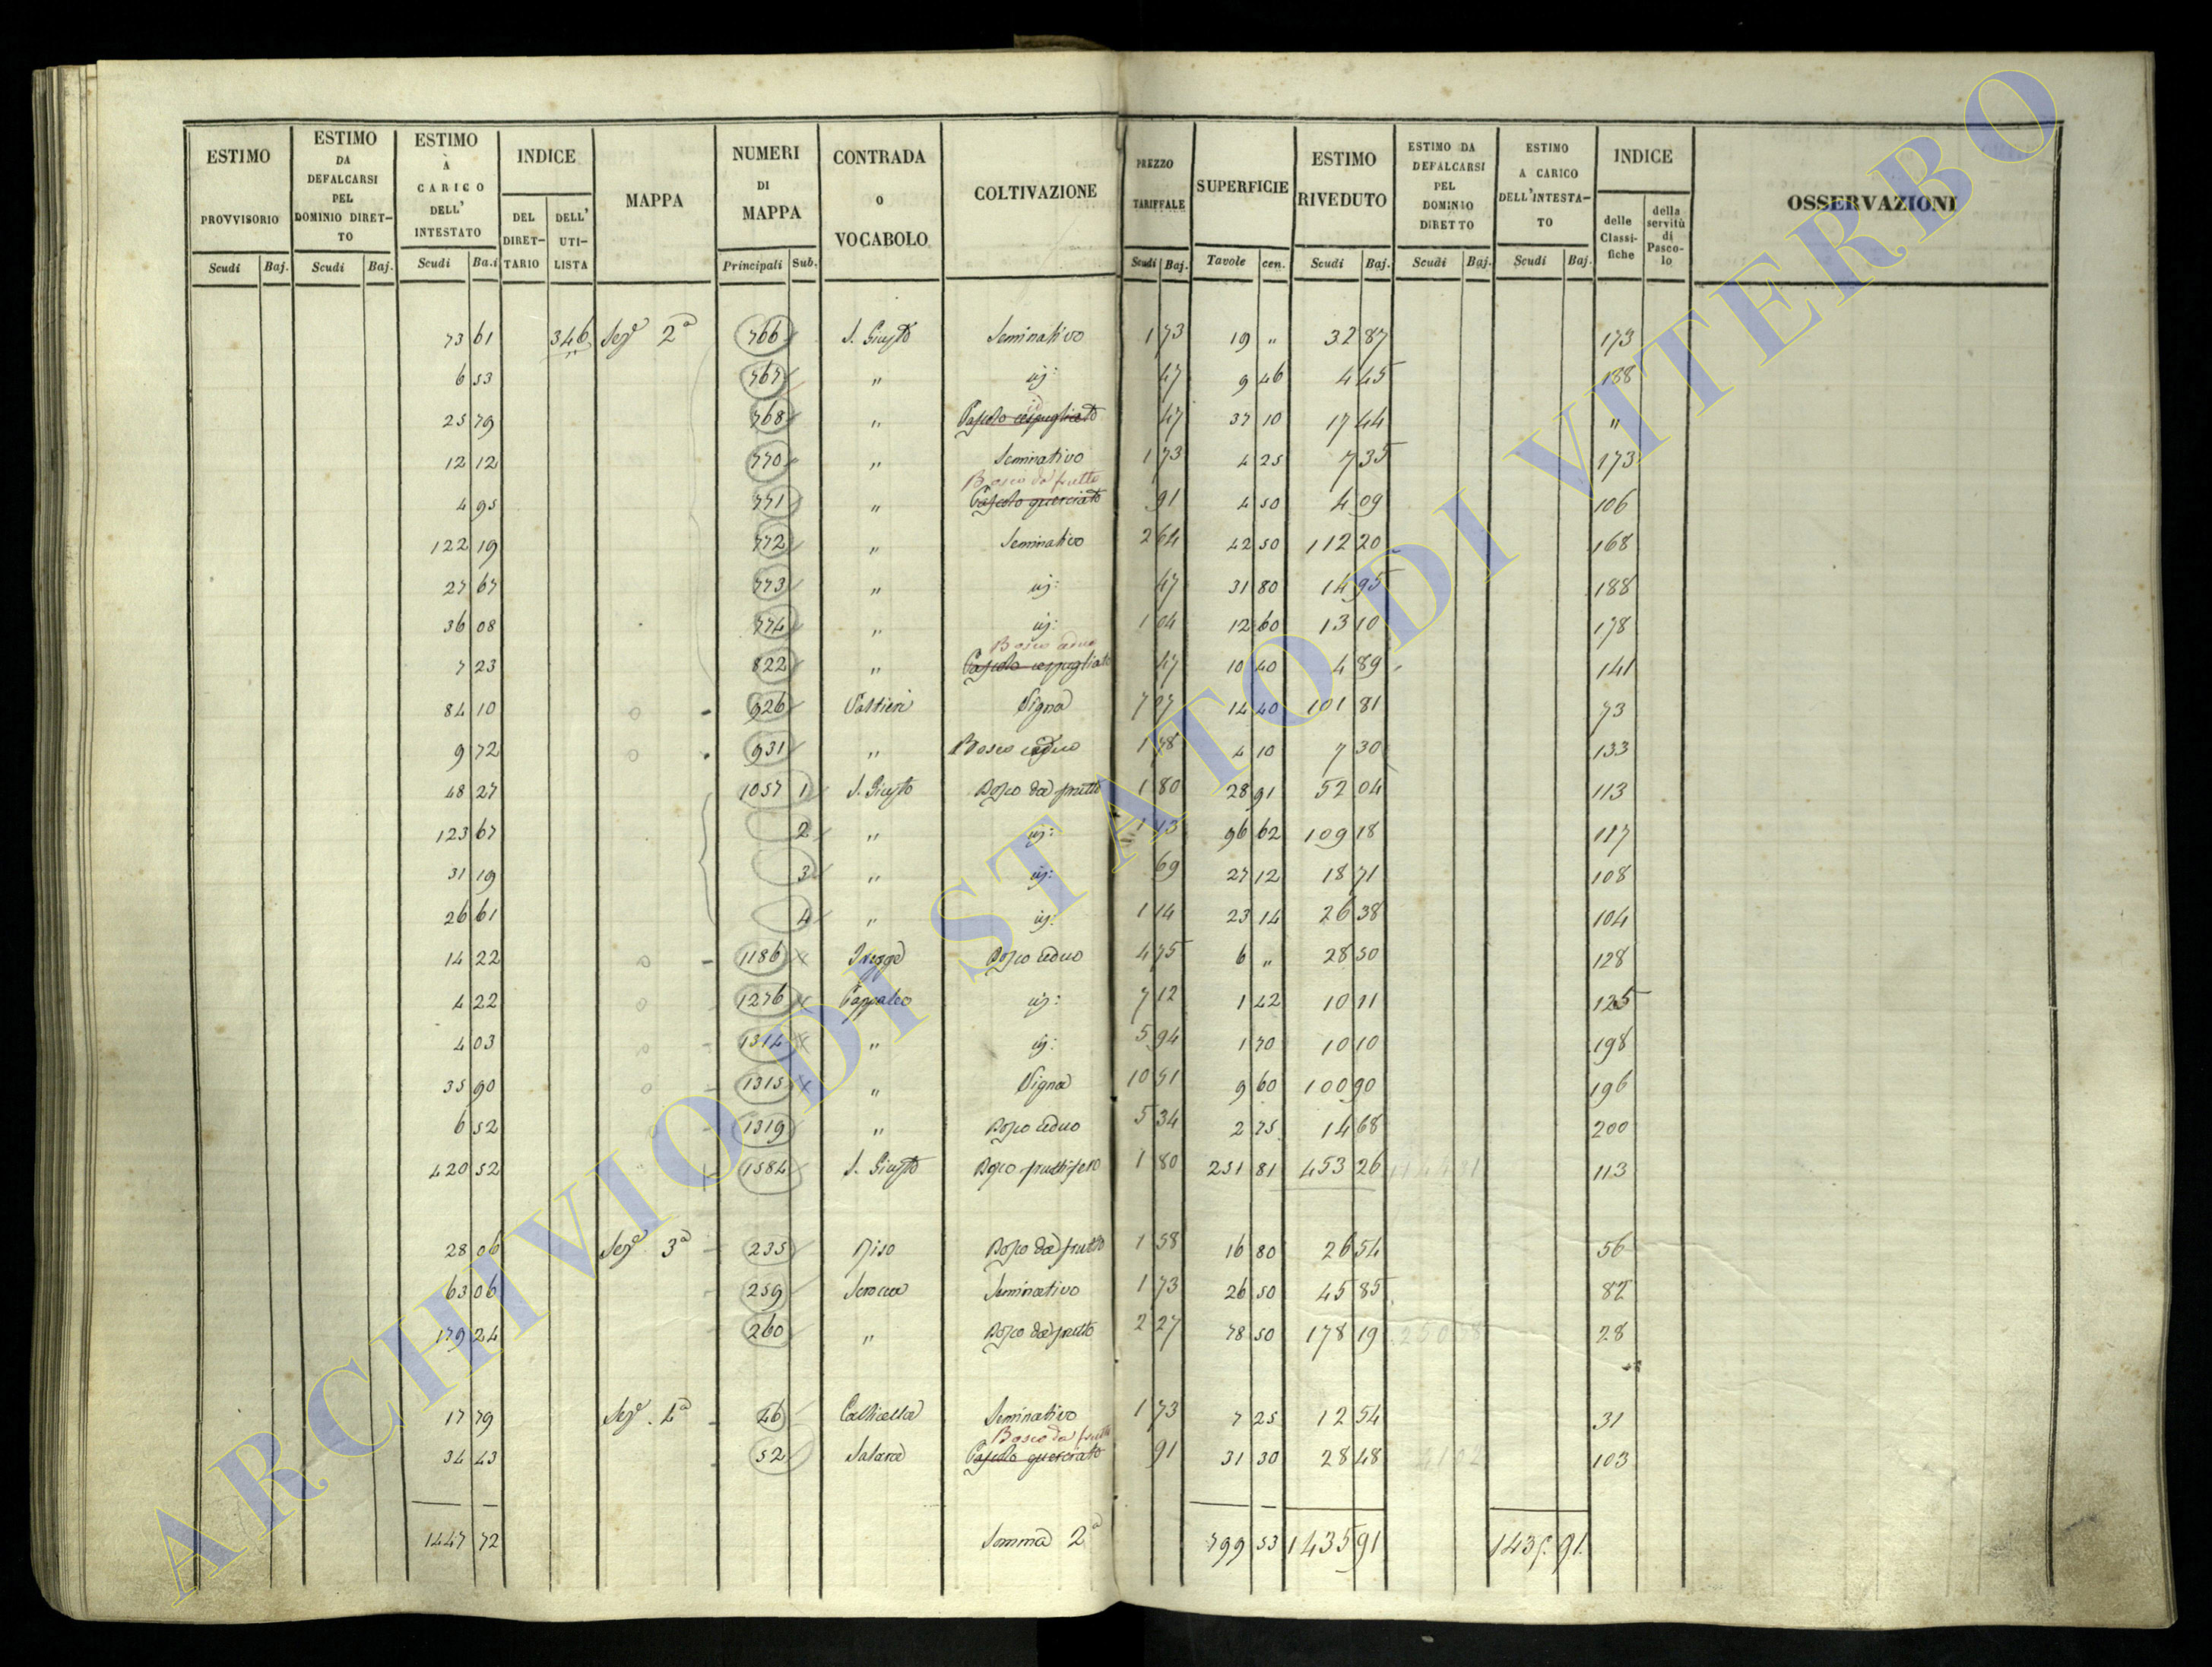 ESTIMO PROVVISORIO | ESTIMO DA DEFALCARSI PEL DOMINIO DIRET-TO | ESTIMO À CARICO DELL' INTESTATO | INDICE | MAPPA | NUMERI DI MAPPA | CONTRADA o VOCABOLO | COLTIVAZIONE | PREZZO TARIFFALE | SUPERFICIE | ESTIMO RIVEDUTO | ESTIMO DA DEFALCARSI PEL DOMINIO DIRETTO | ESTIMO A CARICO DELL'INTESTA-TO | INDICE | OSSERVAZIONI
DEL DIRET-TARIO | DELL' UTI-LISTA | delle Classi-fiche | della servitù di Pasco-lo
Scudi | Baj. | Scudi | Baj. | Scudi | Ba.i | Principali | Sub. | Scudi | Baj. | Tavole | cen. | Scudi | Baj. | Scudi | Baj. | Scudi | Baj.
73 61 | 346 | Sezᵉ 2ª | 766 | S. Giusto | Seminativo | 1 73 | 19 " | 32 87 | 173
6 53 | 767 | " | id: | 47 | 9 46 | 4 45 | 188
id
25 79 | 768 | " | Pascolo cespugliato | 47 | 37 10 | 17 44 | "
12 12 | 770 | " | Seminativo | 1 73 | 4 25 | 7 35 | 173
Bosco da frutto
4 95 | 771 | " | Pascolo querciato | 91 | 4 50 | 4 09 | 106
122 19 | 772 | " | Seminativo | 2 64 | 42 50 | 112 20 | 168
27 67 | 773 | " | id: | 47 | 31 80 | 14 95 | 188
36 08 | 774 | " | id: | 1 04 | 12 60 | 13 10 | 178
Bosco ceduo
7 23 | 822 | " | Pascolo cespugliato | 47 | 10 40 | 4 89 | 141
84 10 | 926 | Valtieri | Vigna | 7 07 | 14 40 | 101 81 | 73
9 72 | 931 | " | Bosco ceduo | 1 78 | 4 10 | 7 30 | 133
48 27 | 1057 1 | S. Giusto | Bosco da frutto | 1 80 | 28 91 | 52 04 | 113
123 67 | 2 | " | id: | 1 13 | 96 62 | 109 18 | 117
31 19 | 3 | " | id: | 69 | 27 12 | 18 71 | 108
26 61 | 4 | " | id: | 1 14 | 23 14 | 26 38 | 104
14 22 | 1186 | Bosco ceduo | 4 75 | 6 " | 28 50 | 128
4 22 | 1276 | Pappalco | id: | 7 12 | 1 42 | 10 11 | 125
4 03 | 1314 | " | id: | 5 94 | 1 70 | 10 10 | 198
35 90 | 1315 | " | Vigna | 10 51 | 9 60 | 100 90 | 196
6 52 | 1319 | " | Bosco ceduo | 5 34 | 2 75 | 14 68 | 200
420 52 | 1584 | S. Giusto | Bosco fruttifero | 1 80 | 251 81 | 453 26 | 113
28 06 | Sezᵉ 3ª | 235 | Riso | Bosco da frutto | 1 58 | 16 80 | 26 54 | 56
63 06 | 259 | Scrocca | Seminativo | 1 73 | 26 50 | 45 85 | 82
179 24 | 260 | " | Bosco da frutto | 2 27 | 78 50 | 178 19 | 28
17 79 | Sezᵉ. 4ª | 46 | Callicella | Seminativo | 1 73 | 7 25 | 12 54 | 31
Bosco da frutto
34 43 | 52 | Salara | Pascolo querciato | 91 | 31 30 | 28 48 | 103
1447 72 | Somma 2ª | 799 53 | 1435 91 | 1435. 91.
ARCHIVIO DI STATO DI VITERBO